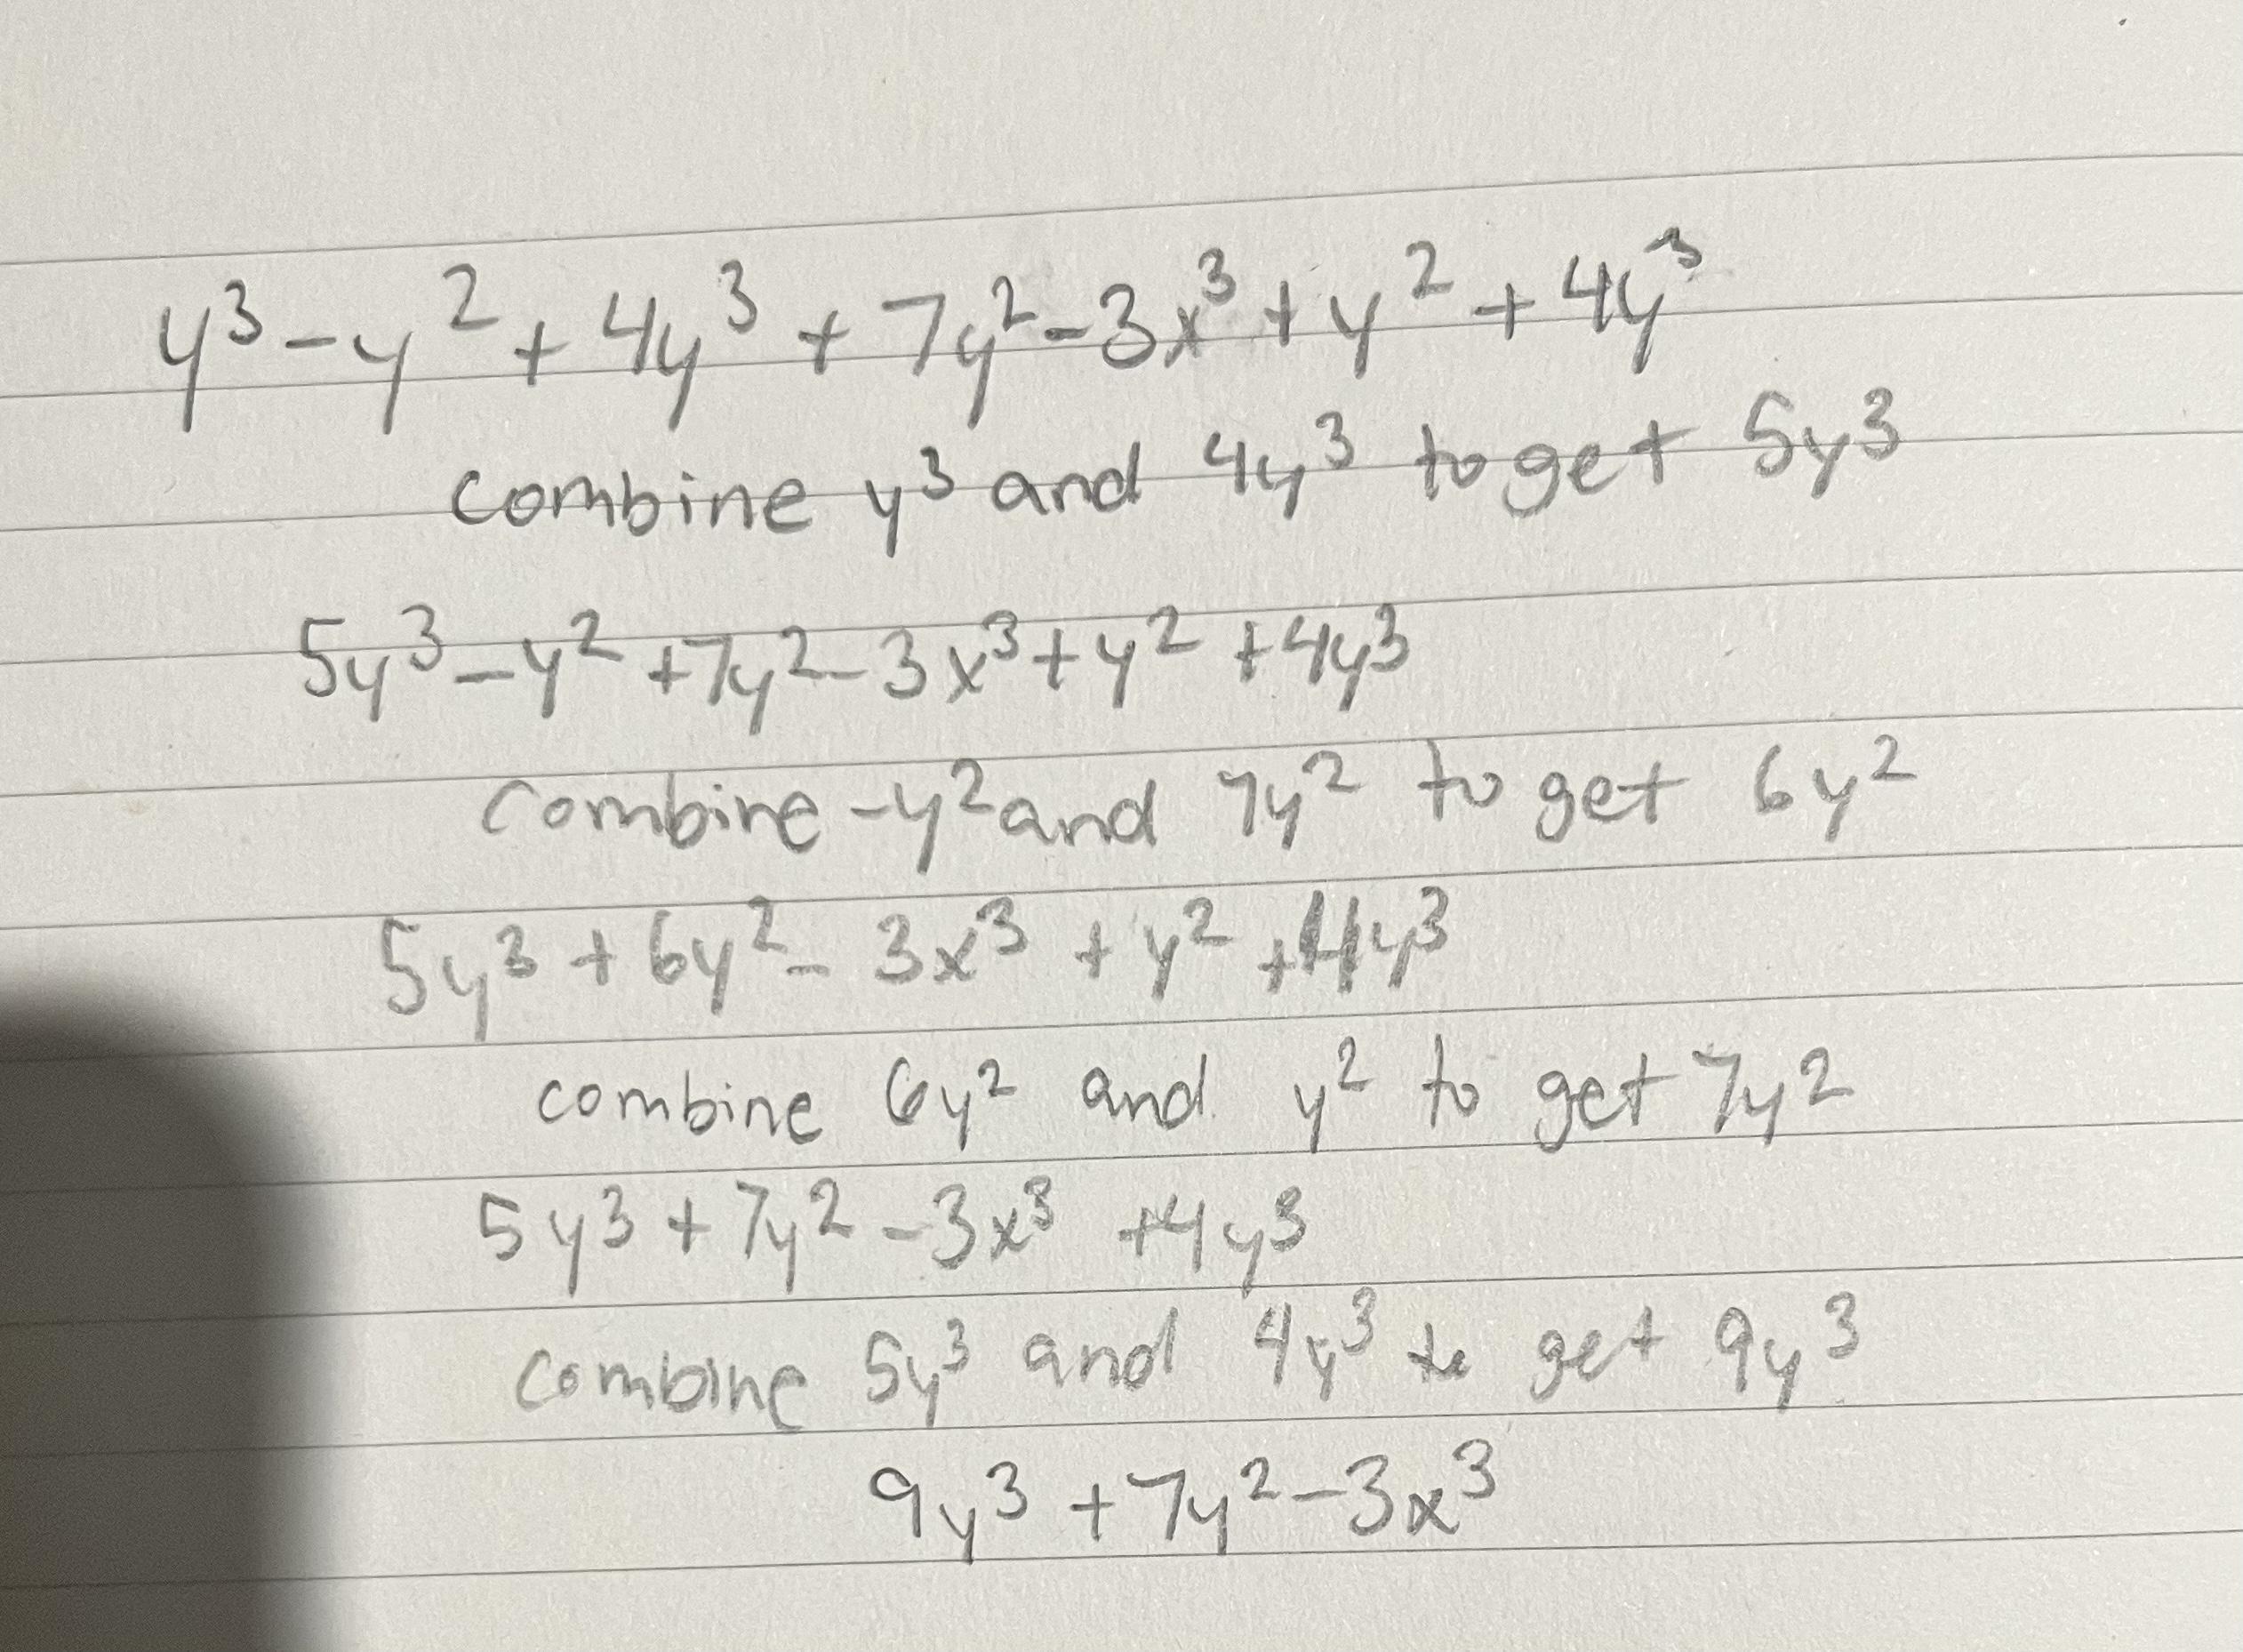 y³ - y² + 4y³ + 7y² - 3x³ + y² + 4y³
combine y³ and 4y³ to get 5y³
5y³ - y² + 7y² - 3x³ + y² + 4y³
combine -y² and 7y² to get 6y²
5y³ + 6y² - 3x³ + y² + 4y³
combine 6y² and y² to get 7y²
5y³ + 7y² - 3x³ + 4y³
combine 5y³ and 4y³ to get 9y³
9y³ + 7y² - 3x³